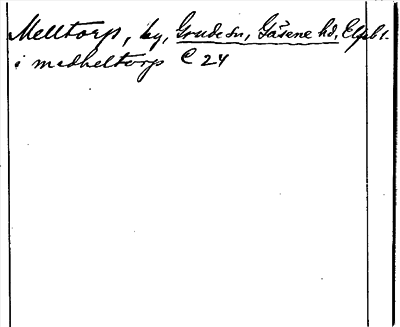 Melltorp, by, Grude sn, Gäsene hd, Elfsb l.
i medheltorp C 24